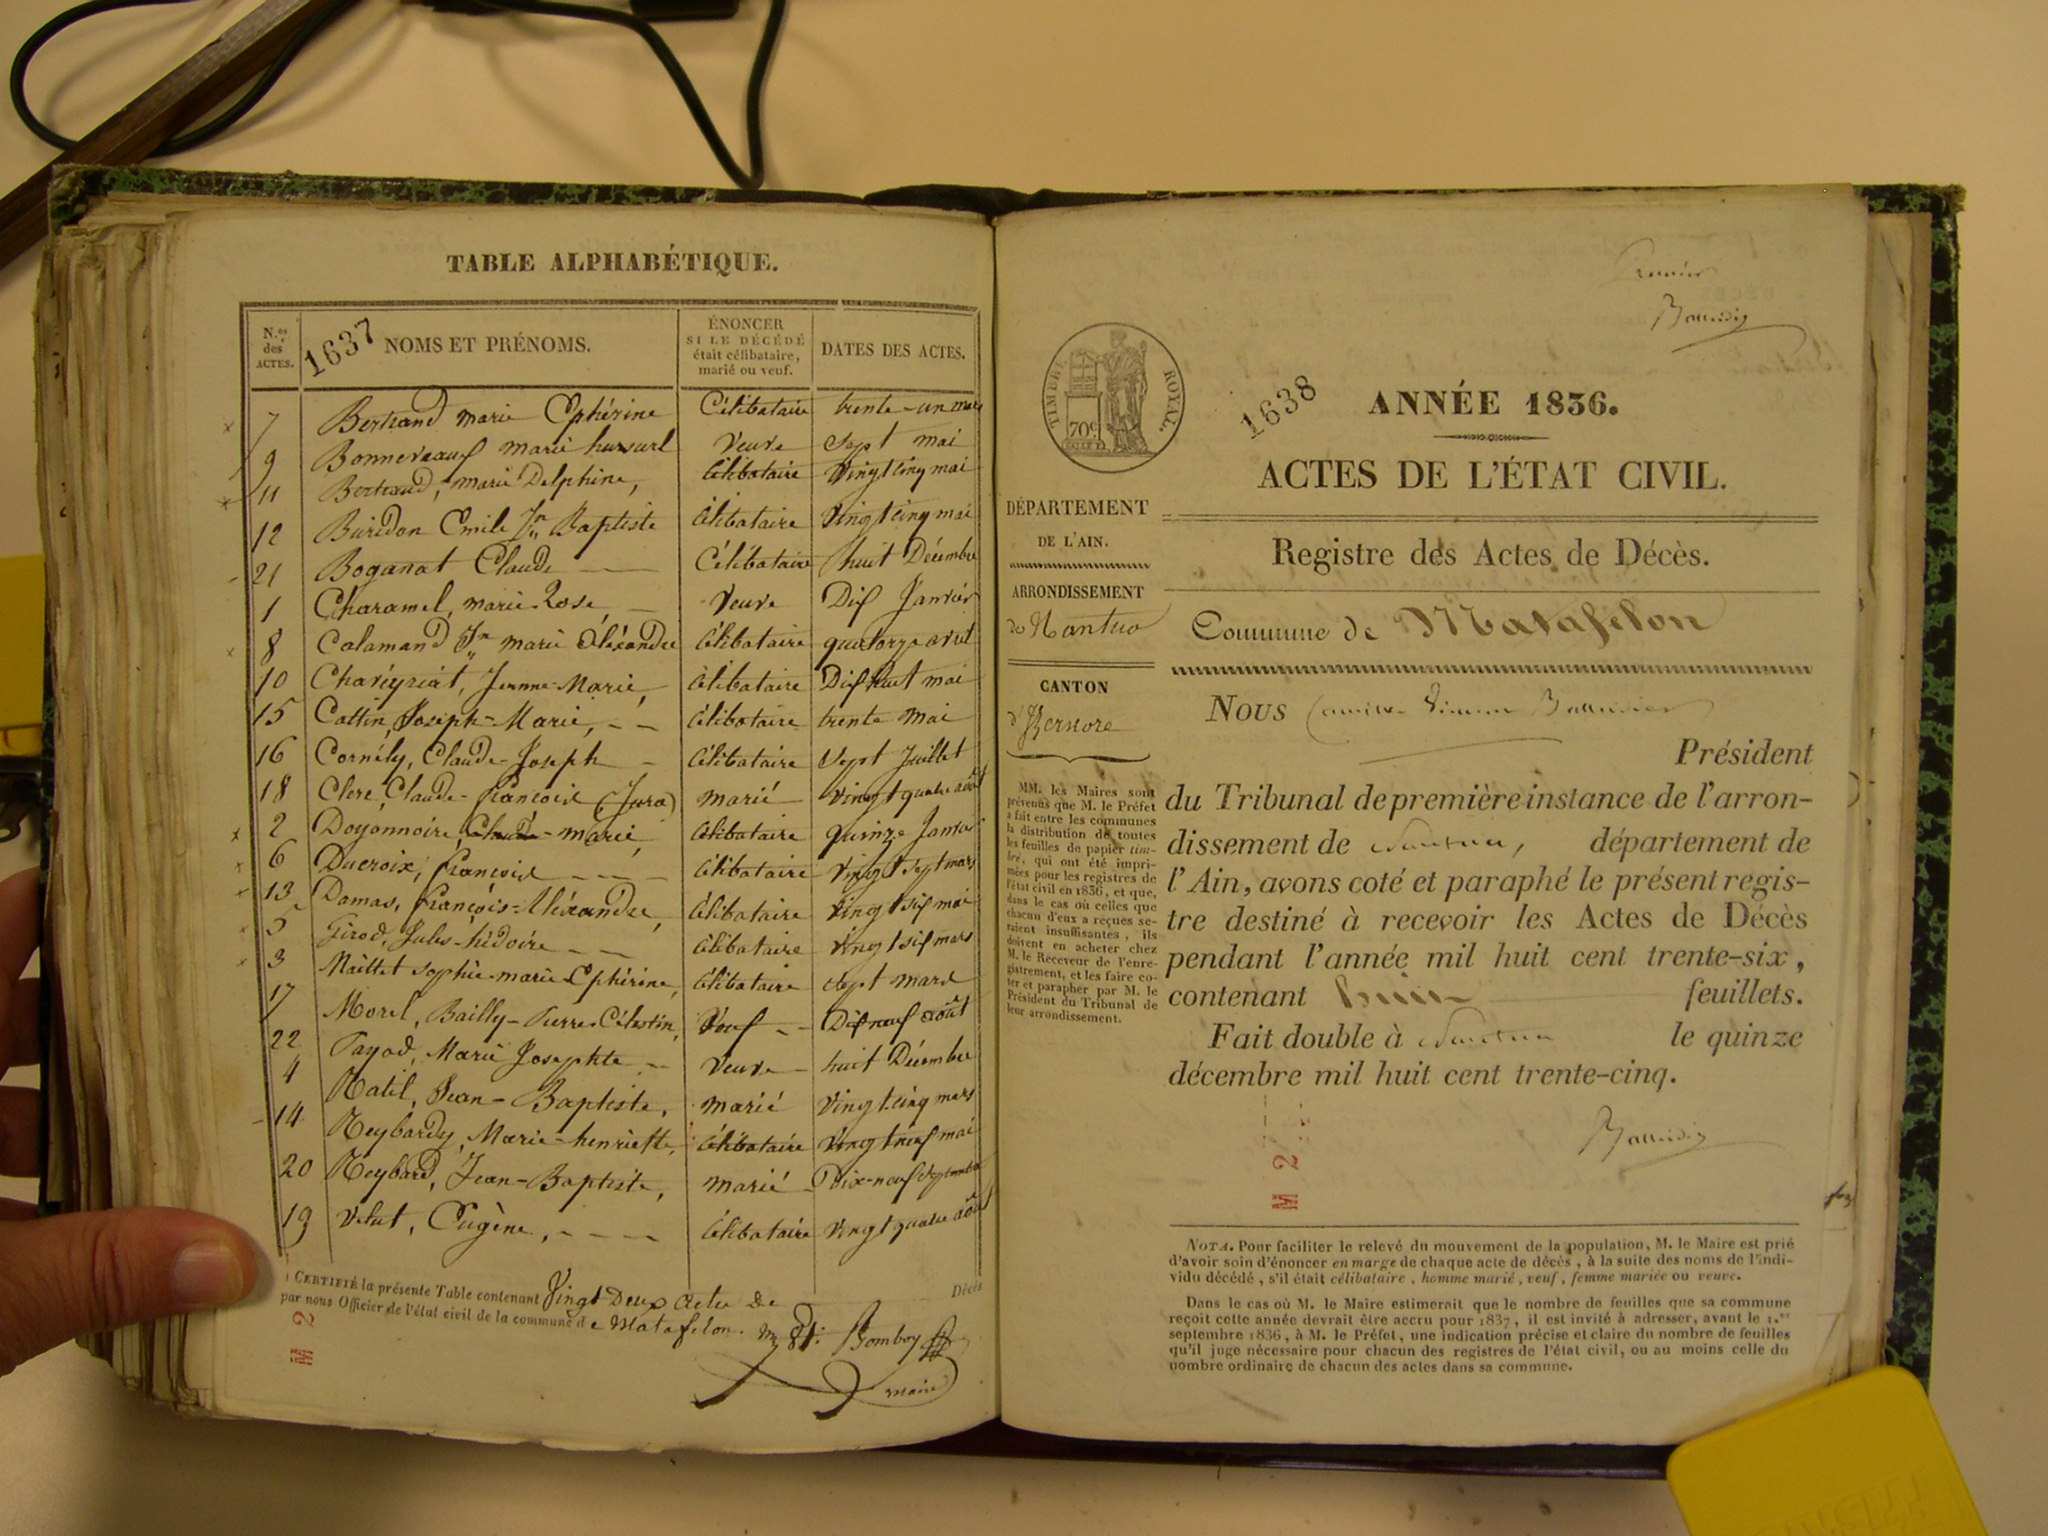 TABLE ALPHABÉTIQUE.
N.os des ACTES.
1637
NOMS ET PRÉNOMS.
ÉNONCER
SI LE DÉCÉDÉ
était célibataire,
marié ou veuf.
DATES DES ACTES.
7 Bertrand marie Ephérine Célibataire trente-un mars
9 marie Veuve Sept mai
11 Bertrand, marie Delphine, Célibataire Vingt cinq mai
12 Buridon Emile Jn Baptiste Célibataire Vingt cinq mai
21 Boganat Claude Célibataire huit Décembre
1 Charamel, marie Rose Veuve Dix Janvier
8 Calamand Jn marie Aléxandre Célibataire quatorze avril
10 Chareyriat, Jeanne-Marie, Célibataire Dix huit mai
15 Cattin, Joseph-Marie, Célibataire trente mai
16 Cornély, Claude-Joseph Célibataire Sept Juillet
18 Clerc, Claude-françois (Jura) marié Vingt quatre août
2 Doyonnoire, Claude-marie, Célibataire quinze Janvier
6 Ducroix, françois Célibataire Vingt sept mars
13 Damas, françois-Aléxandre, Célibataire Vingt six mai
5 Girod, Jules-hidoire Célibataire Vingt six mars
3 Maillet Sophie-marie Ephérine, Célibataire Sept mars
17 Morel, Bailly-Pierre Célestin, Veuf Dix neuf août
22 Payod, Marie Josephte Veuve huit Décembre
4 Ratil, Jean-Baptiste, marié Vingt cinq mars
14 Reybardy, Marie-henriette, Célibataire Vingt neuf mai
20 Reybard, Jean-Baptiste, marié Dix-neuf Septembre
19 Velut, Eugène, Célibataire Vingt quatre août
CERTIFIÉ la présente Table contenant Vingt Deux actes de Décès
par nous Officier de l'état civil de la commune de Matafelon. Bomboy
maire
M 2
Premier
TIMBRE ROYAL.
70c
1638
ANNÉE 1836.
ACTES DE L'ÉTAT CIVIL.
DÉPARTEMENT
DE L'AIN.
ARRONDISSEMENT
de Nantua
CANTON
d'Izernore
MM. les Maires sont
prévenus que M. le Préfet
a fait entre les communes
la distribution de toutes
les feuilles de papier tim-
bré, qui ont été impri-
mées pour les registres de
l'état civil en 1836, et que,
dans le cas où celles que
chacun d'eux a reçues se-
raient insuffisantes, ils
doivent en acheter chez
M. le Receveur de l'enre-
gistrement, et les faire co-
ter et parapher par M. le
Président du Tribunal de
leur arrondissement.
Registre des Actes de Décès.
Commune de Matafelon
NOUS Camille
Président
du Tribunal de première instance de l'arron-
dissement de Nantua, département de
l'Ain, avons coté et paraphé le présent regis-
tre destiné à recevoir les Actes de Décès
pendant l'année mil huit cent trente-six,
contenant huit feuillets.
Fait double à Nantua le quinze
décembre mil huit cent trente-cinq.
M 2
NOTA. Pour faciliter le relevé du mouvement de la population, M. le Maire est prié
d'avoir soin d'énoncer en marge de chaque acte de décès, à la suite des noms de l'indi-
vidu décédé, s'il était célibataire, homme marié, veuf, femme mariée ou veuve.
Dans le cas où M. le Maire estimerait que le nombre de feuilles que sa commune
reçoit cette année devrait être accru pour 1837, il est invité à adresser, avant le 1.er
septembre 1836, à M. le Préfet, une indication précise et claire du nombre de feuilles
qu'il juge nécessaire pour chacun des registres de l'état civil, ou au moins celle du
nombre ordinaire de chacun des actes dans sa commune.